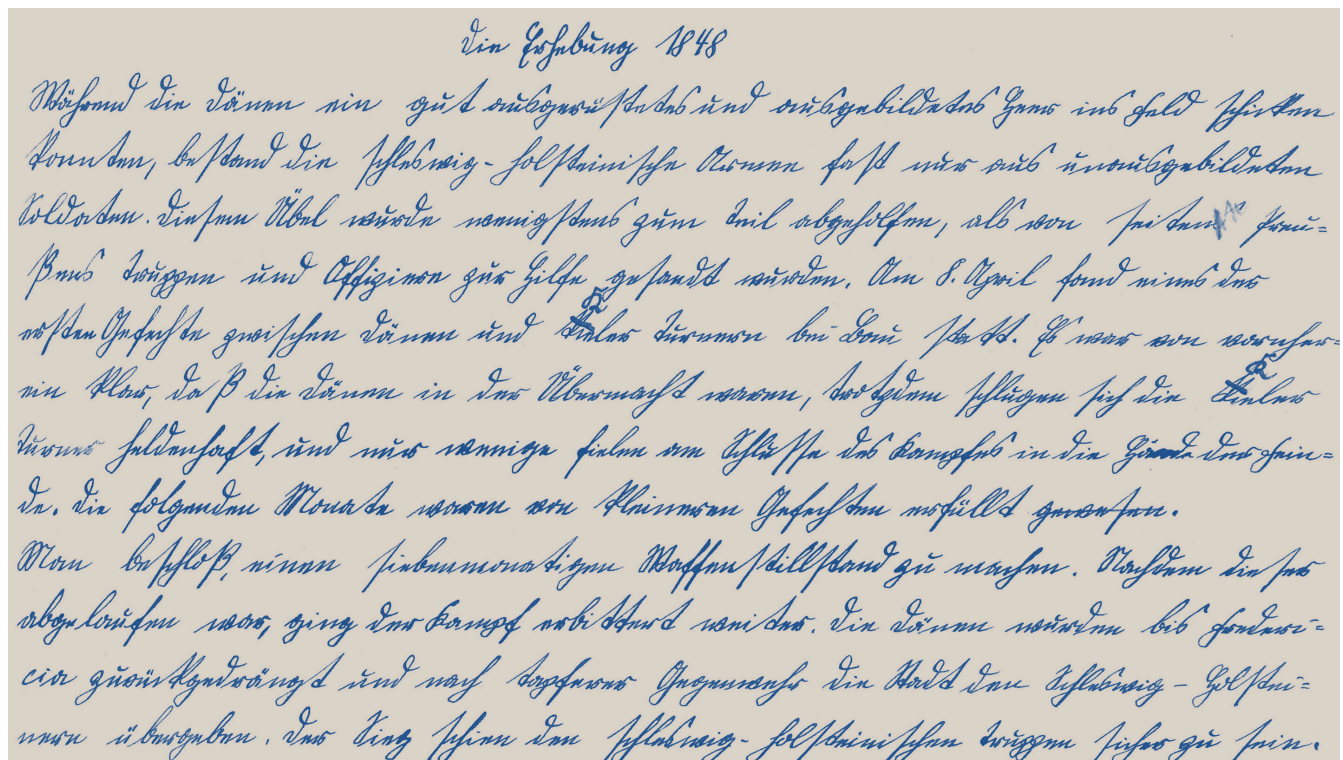 Die Erhebung 1848
Während die Dänen ein gut ausgerüstetes und ausgebildetes Heer ins Feld schicken
konnten, bestand die schleswig-holsteinische Armee fast nur aus unausgebildeten
Soldaten. Diesem Übel wurde wenigstens zum Teil abgeholfen, als von seiten Preu=
ßens Truppen und Offiziere zur Hilfe gesandt wurden. Am 8. April fand eines der
ersten Gefechte zwischen Dänen und Kieler Turnern bei Bau statt. Es war von vornher=
ein klar, daß die Dänen in der Übermacht waren, trotzdem schlugen sich die Kieler
Turner heldenhaft, und nur wenige fielen am Schlusse des Kampfes in die Hände der Fein=
de. Die folgenden Monate waren von kleineren Gefechten erfüllt gewesen.
Man beschloß, einen siebenmonatigen Waffenstillstand zu machen. Nachdem dieser
abgelaufen war, ging der Kampf erbittert weiter. Die Dänen wurden bis Frederi=
cia zurückgedrängt und nach tapferer Gegenwehr die Stadt den Schleswig-Holstei=
nern übergeben. Der Sieg schien den schleswig-holsteinischen Truppen sicher zu sein.